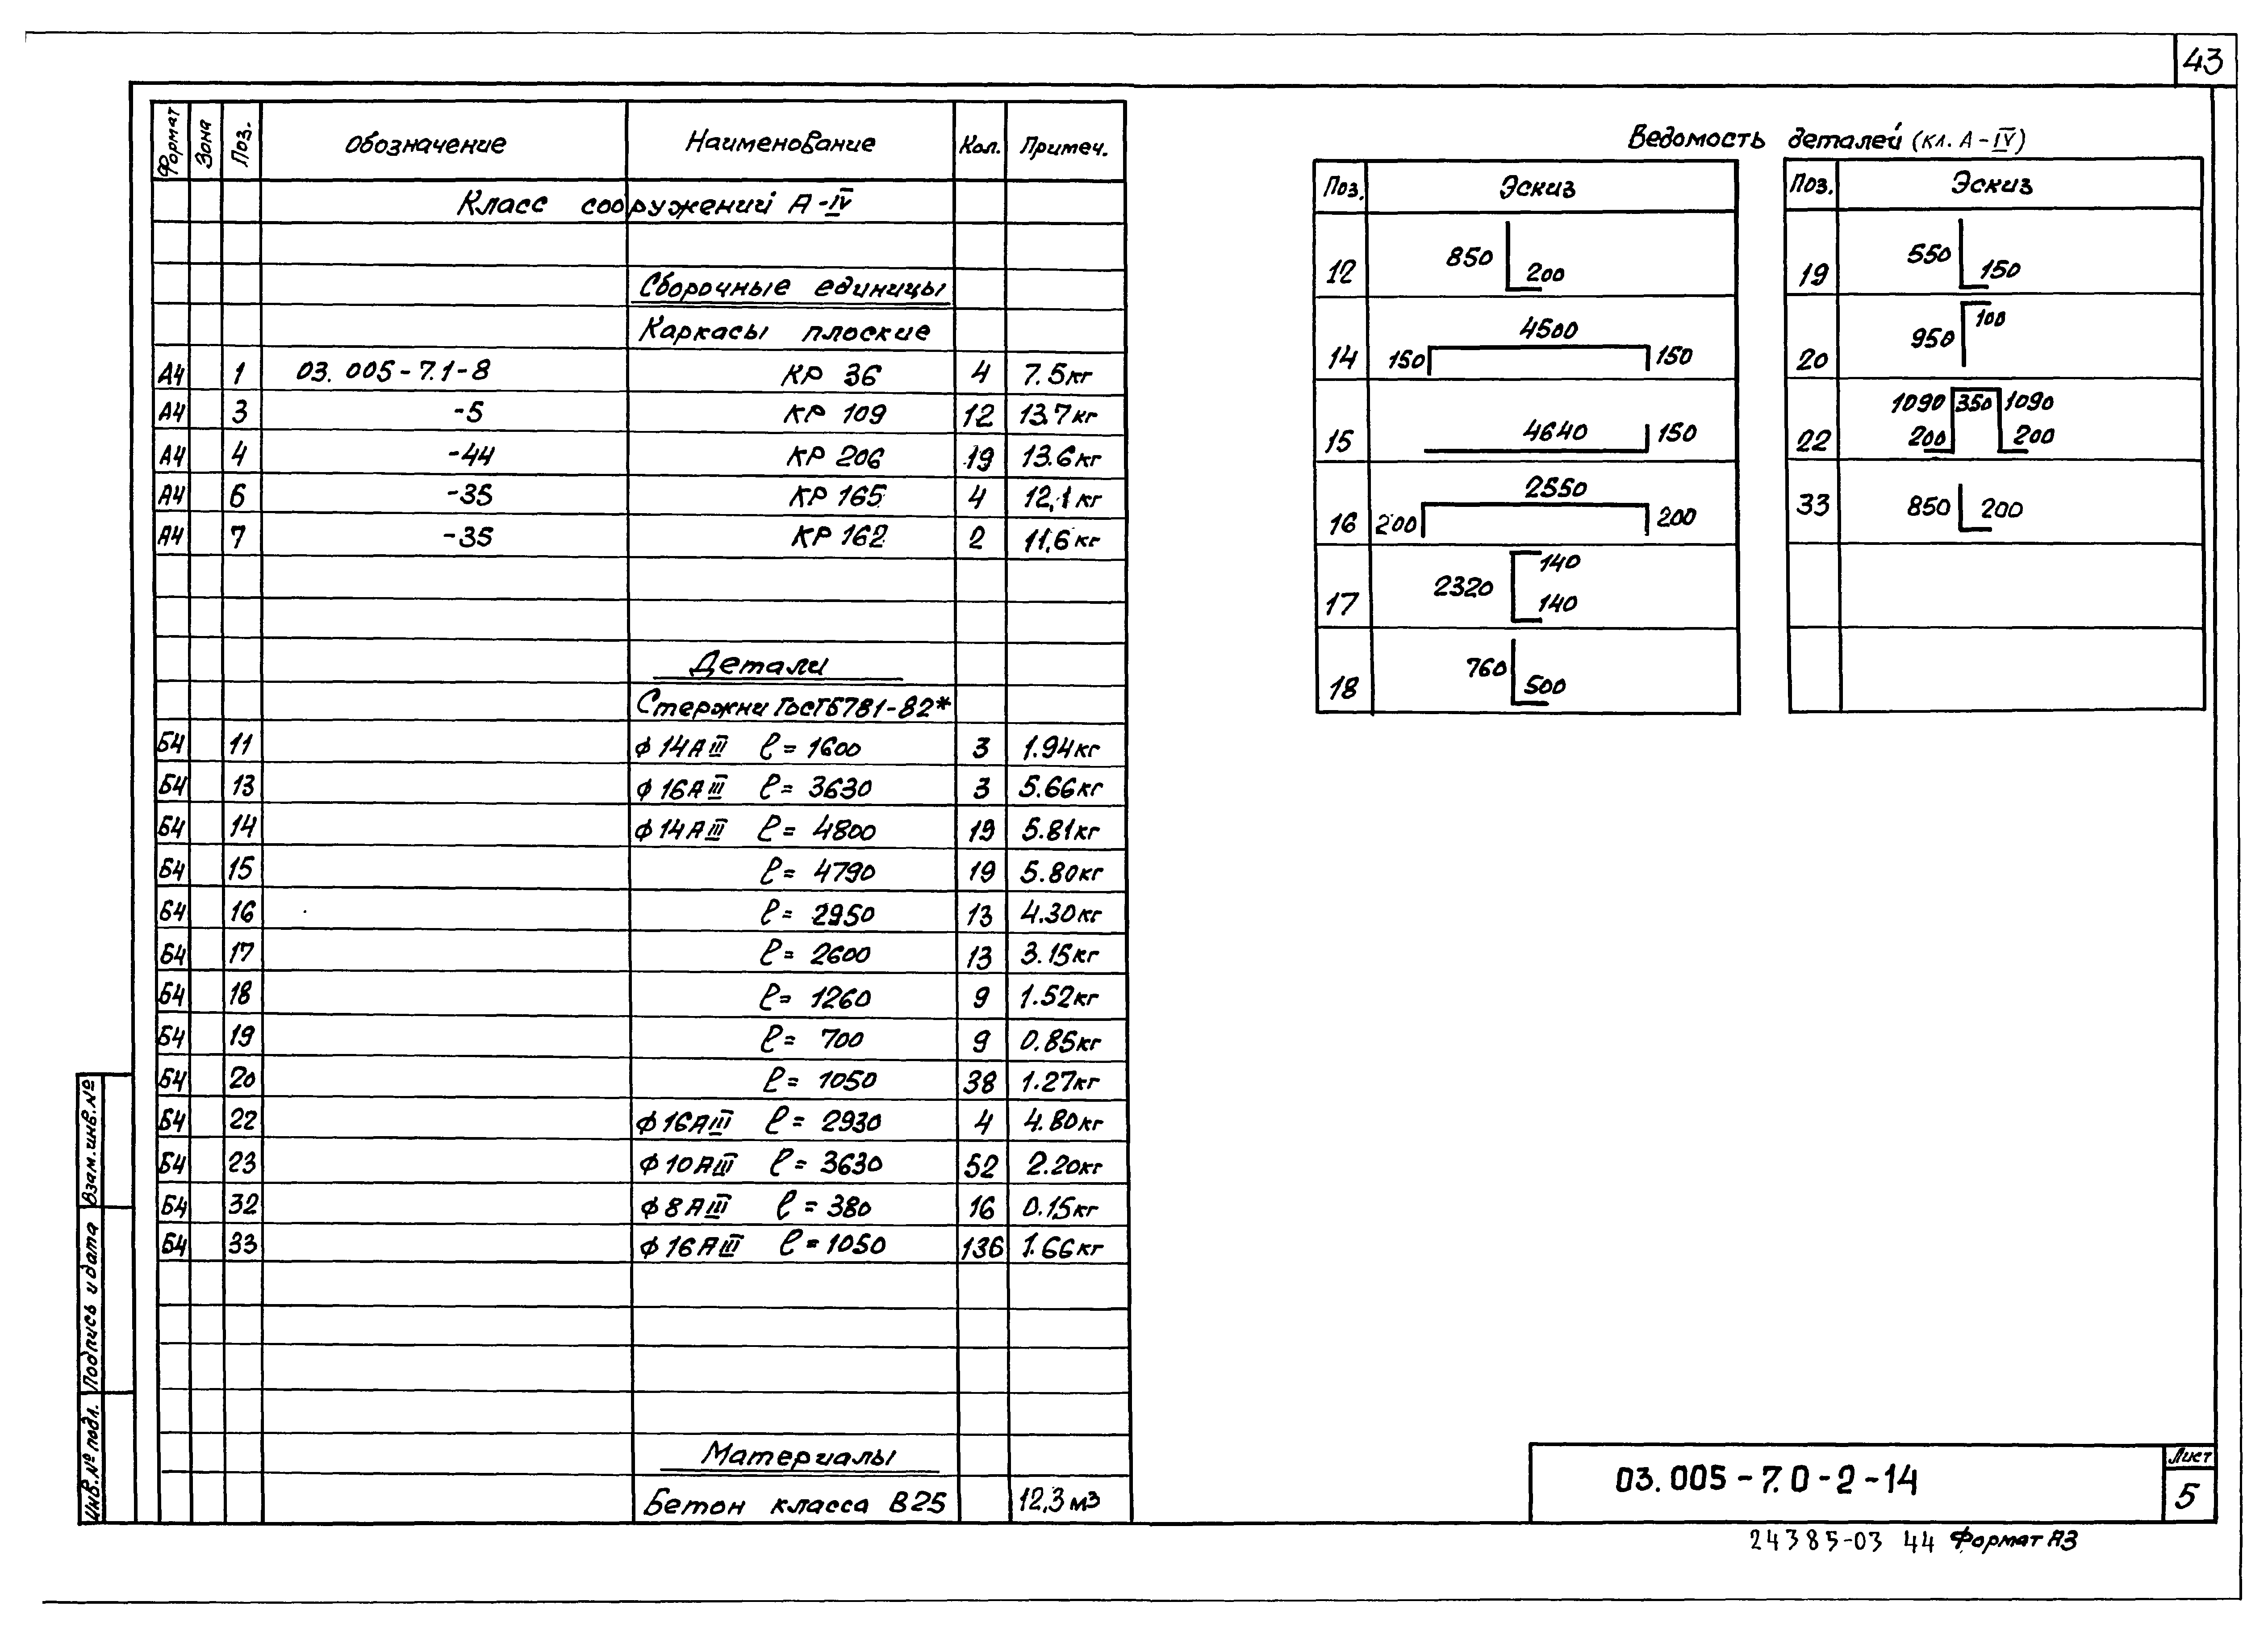 43
Формат Зона Поз. Обозначение Наименование Кол. Примеч.
Класс сооружений А-IV
Сборочные единицы
Каркасы плоские
А4 1 03.005-7.1-8 КР 36 4 7.5кг
А4 3 -5 КР 109 12 13.7кг
А4 4 -44 КР 206 19 13.6кг
А4 6 -35 КР 165 4 12,1кг
А4 7 -35 КР 162 2 11,6кг
Детали
Стержни ГОСТ5781-82*
Б4 11 ϕ14АIII ℓ= 1600 3 1.94кг
Б4 13 ϕ16АIII ℓ= 3630 3 5.66кг
Б4 14 ϕ14АIII ℓ= 4800 19 5.81кг
Б4 15 ℓ= 4790 19 5.80кг
Б4 16 ℓ= 2950 13 4.30кг
Б4 17 ℓ= 2600 13 3.15кг
Б4 18 ℓ= 1260 9 1.52кг
Б4 19 ℓ= 700 9 0.85кг
Б4 20 ℓ= 1050 38 1.27кг
Б4 22 ϕ16АIII ℓ= 2930 4 4.80кг
Б4 23 ϕ10АIII ℓ= 3630 52 2.20кг
Б4 32 ϕ8АIII ℓ= 380 16 0.15кг
Б4 33 ϕ16АIII ℓ=1050 136 1.66кг
Материалы
Бетон класса В25 12,3м3
Ведомость деталей (кл. А-IV)
Поз. Эскиз
12 850 200
14 150 4500 150
15 4640 150
16 200 2550 200
17 2320 140 140
18 760 500
Поз. Эскиз
19 550 150
20 950 100
22 1090 350 1090 200 200
33 850 200
Взам.инв.№
Подпись и дата
Инв.№ подл.
03.005-7.0-2-14
Лист
5
24385-03 44 Формат А3